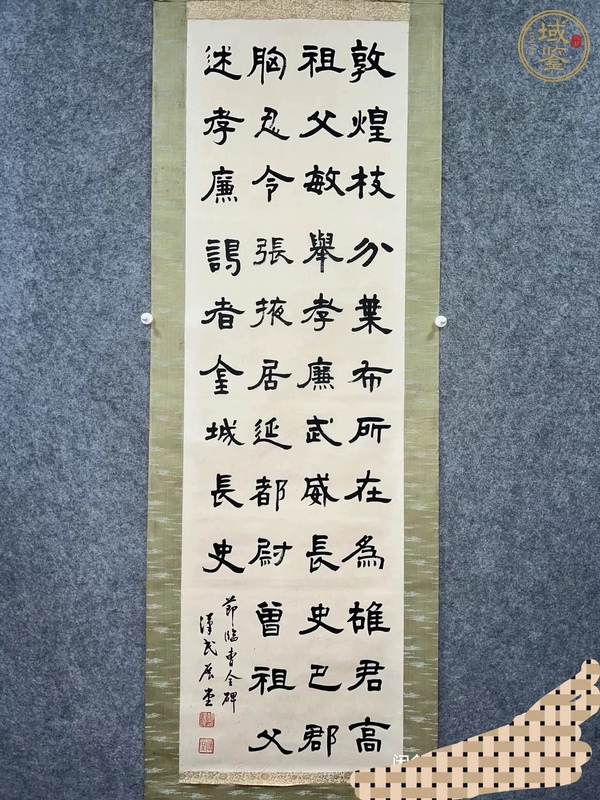 敦煌枝分葉布所在為雄君高
祖父敏舉孝廉武威長史巴郡
胸忍令張掖居延都尉曾祖父
述孝廉謁者金城長史
節臨曹全碑
漢民展堂
域鑒